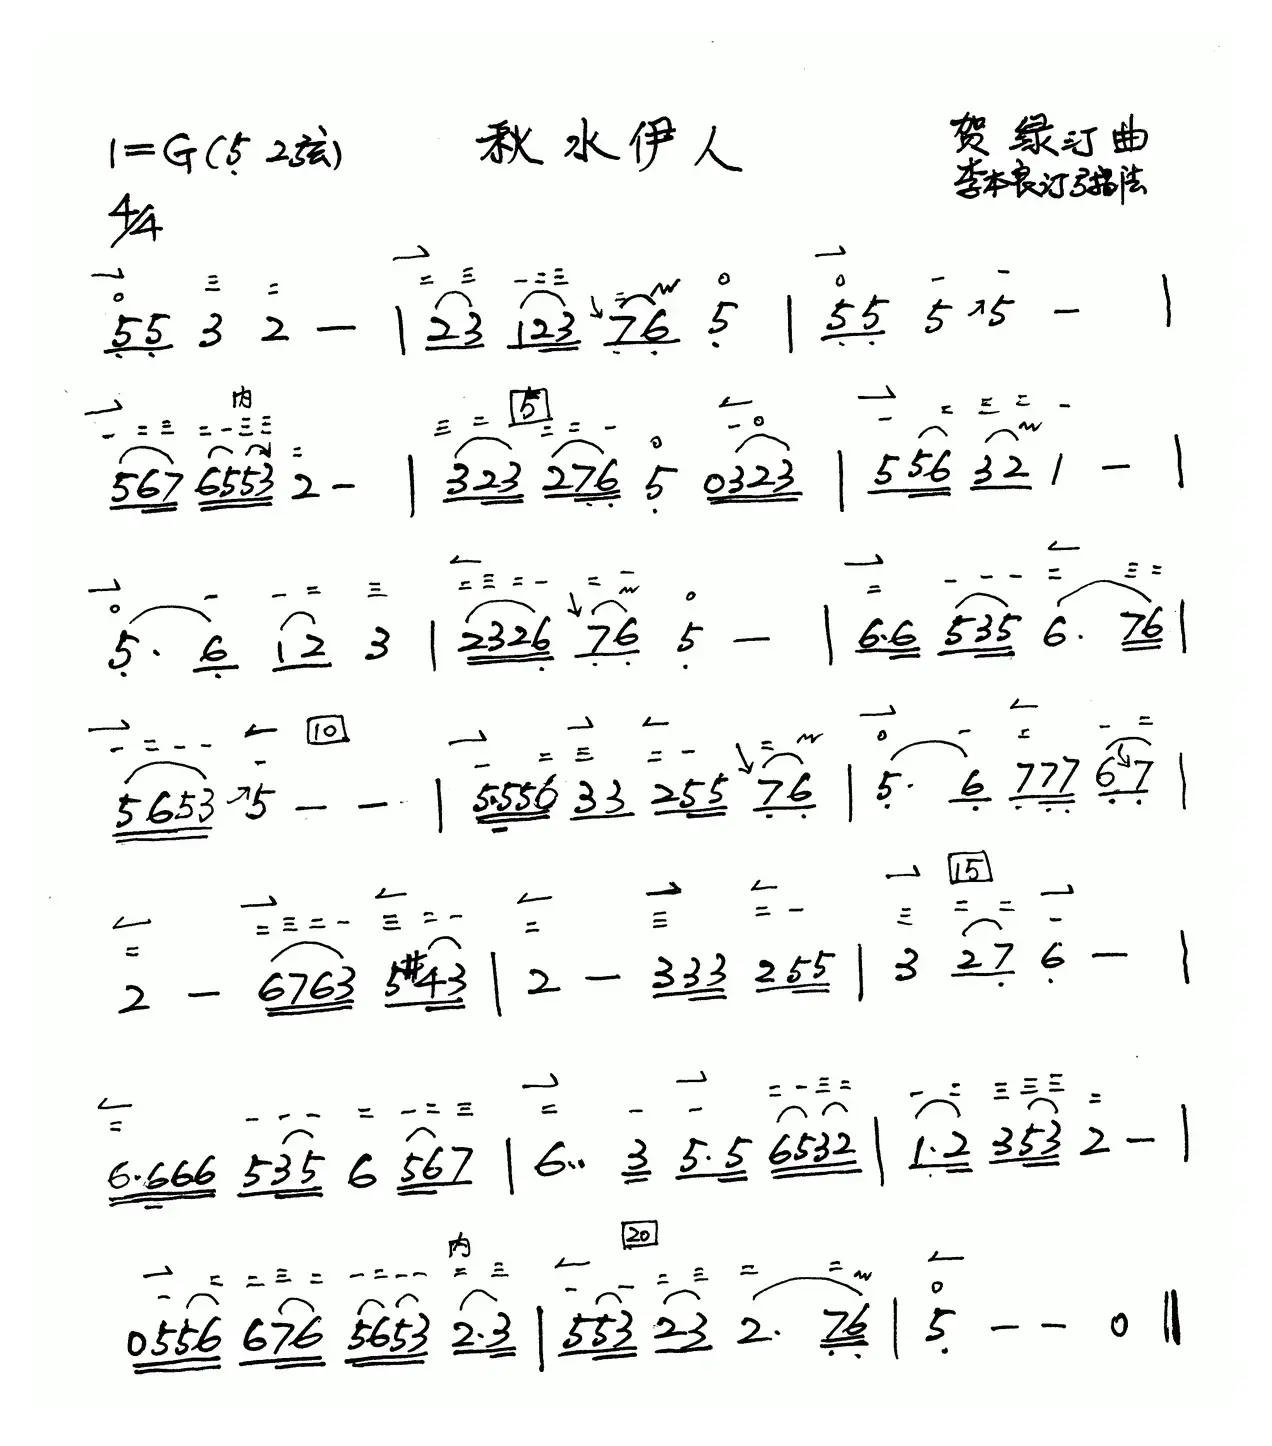 1=G(5̣ 2弦) 秋水伊人 贺绿汀曲
4/4 李本良订弓指法
5̣5̣ 3 2 — | 23 123 7̣6̣ 5̣ | 5̣5̣ 5 ↗5 — |
内
567 6553 2 — | 323 27̣6̣ 5̣ 0323 | 556 32 1 — |
5
5̣. 6̣ 12 3 | 2326̣ 7̣6̣ 5̣ — | 6.6 535 6. 76 |
5653 ↗5 — — | 5.556 33 255 7̣6̣ | 5̣. 6̣ 7̣7̣7̣ 6̣7̣ |
10
2 — 6763 5#43 | 2 — 333 255 | 3 27̣ 6̣ — |
15
6.666 535 6 567 | 6.. 3 5.5 6532 | 1.2 353 2 — |
内
0556 676 5653 2.3 | 553 23 2. 7̣6̣ | 5̣ — — 0 ‖
20